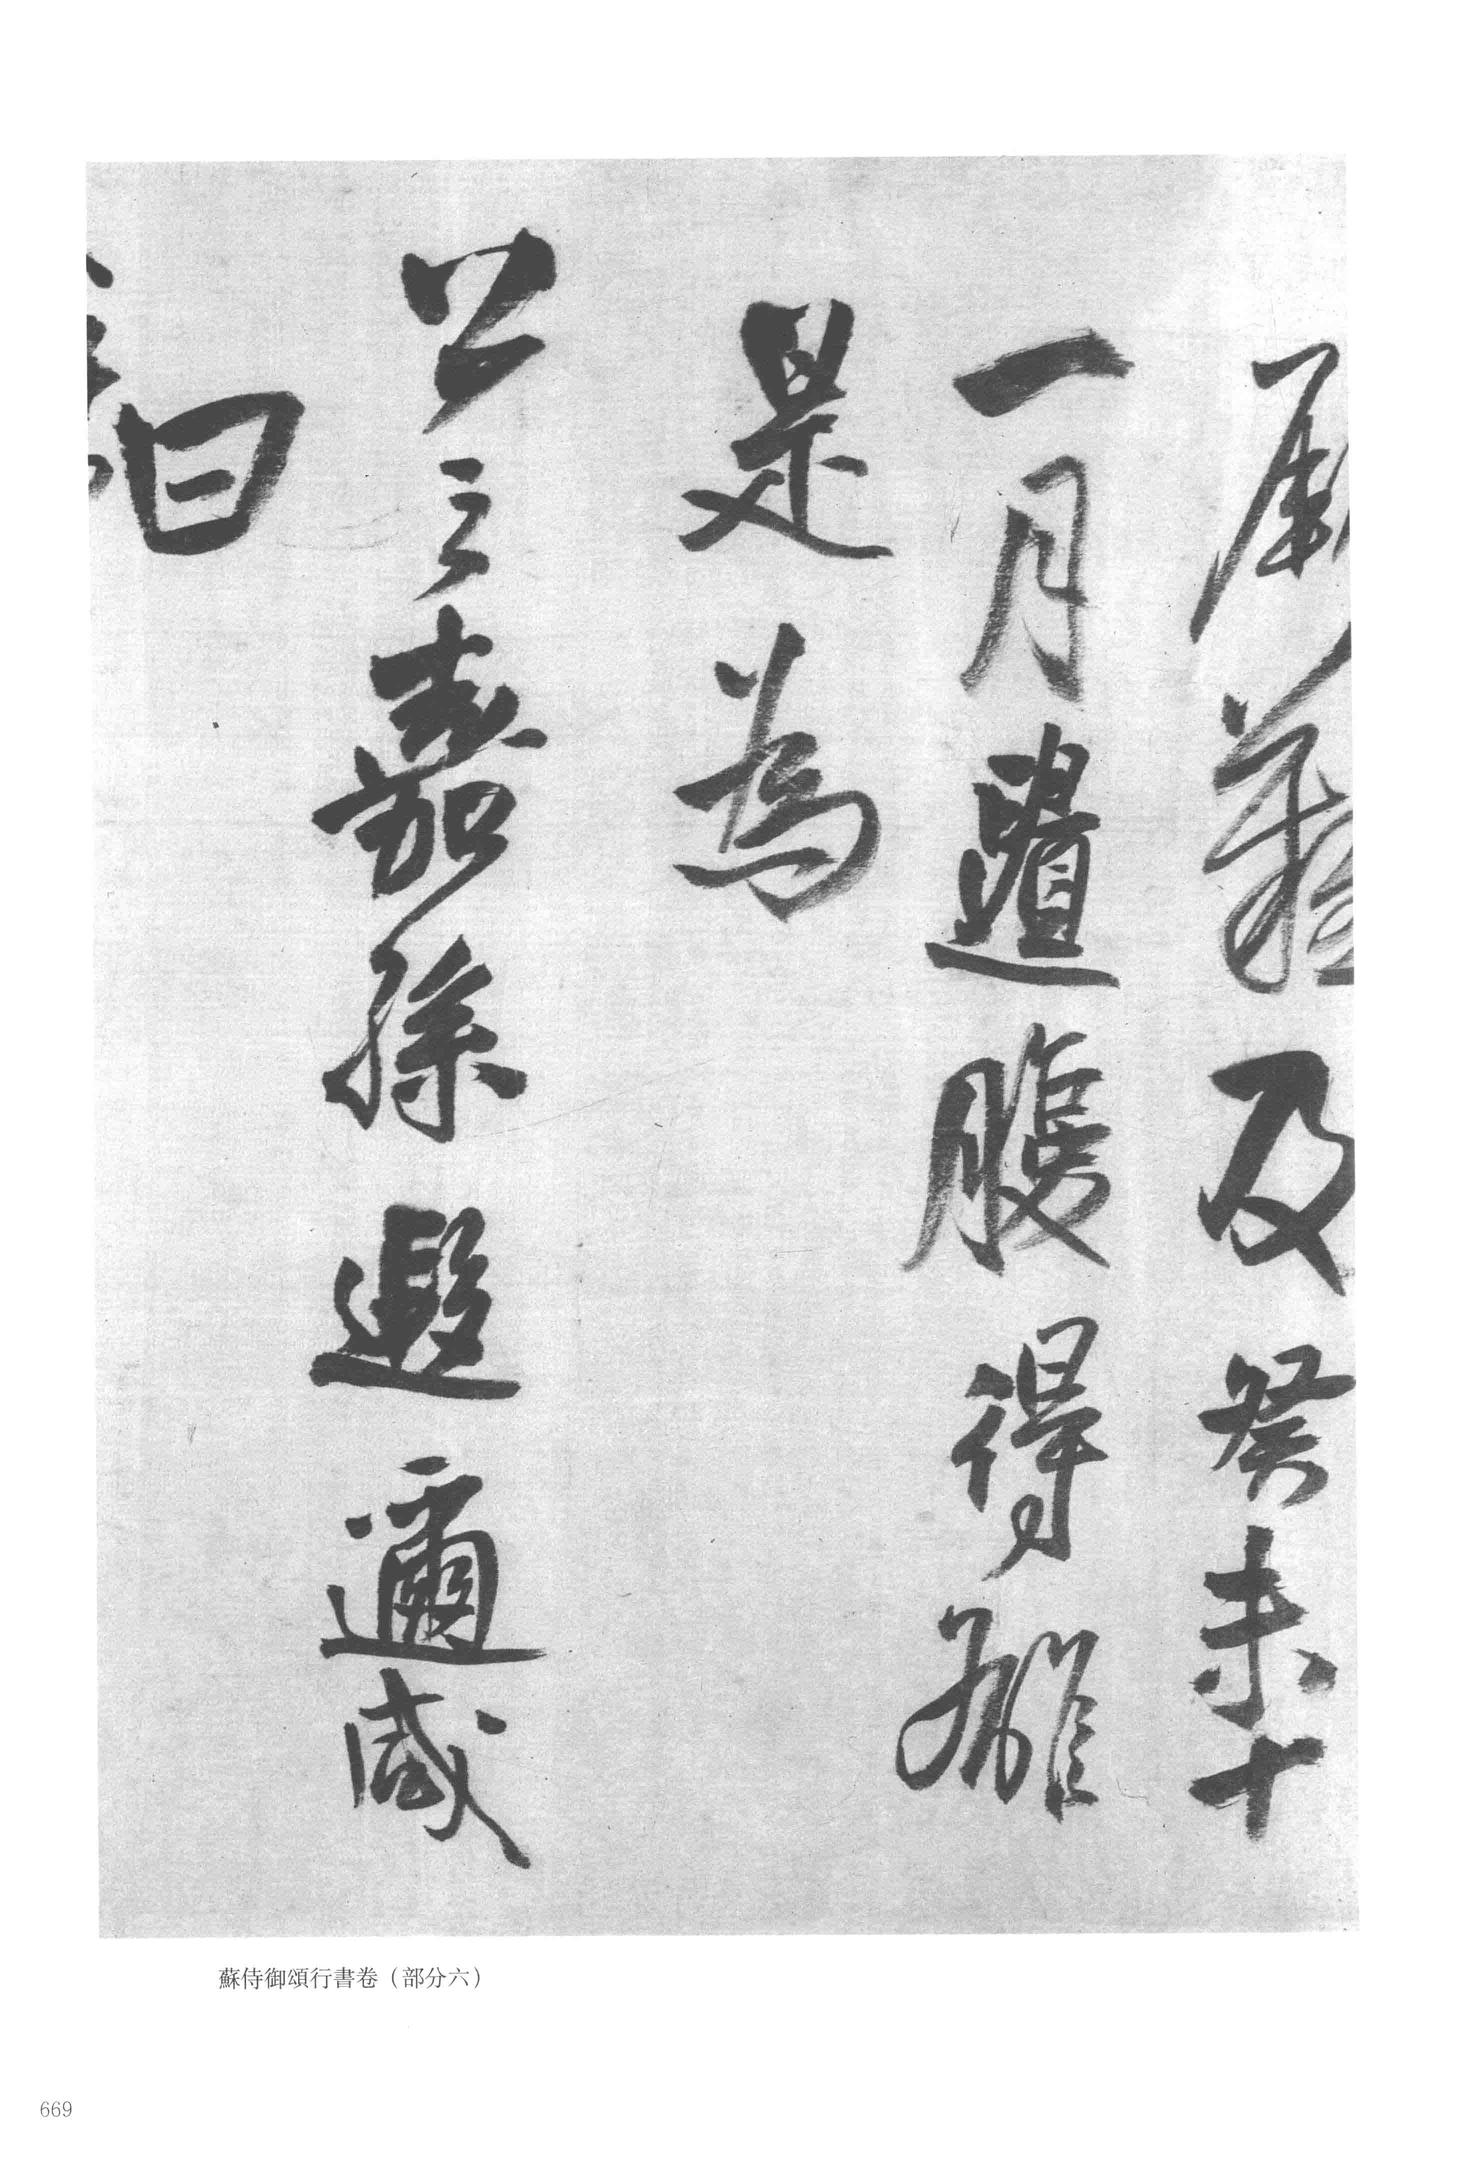 厥 及癸未十
一月遺腹得雄
是為
公之嘉孫遐邇咸
曰
蘇侍御頌行書卷（部分六）
669